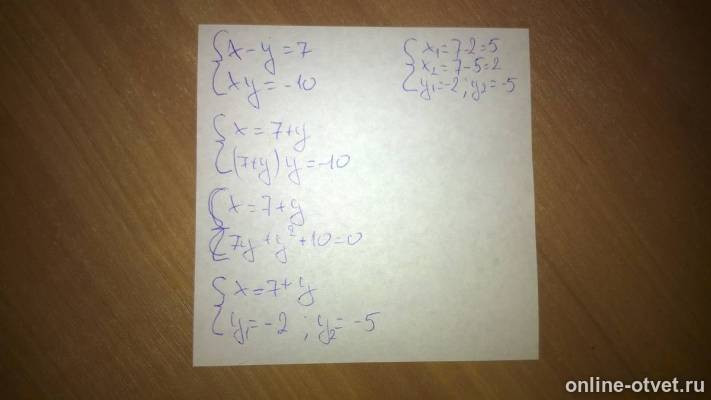 x - y = 7
xy = -10
x = 7 + y
(7+y) y = -10
x = 7 + y
7y + y² + 10 = 0
x = 7 + y
y₁ = -2 ; y₂ = -5
x₁ = 7-2 = 5
x₂ = 7-5 = 2
y₁ = -2 ; y₂ = -5
online-otvet.ru